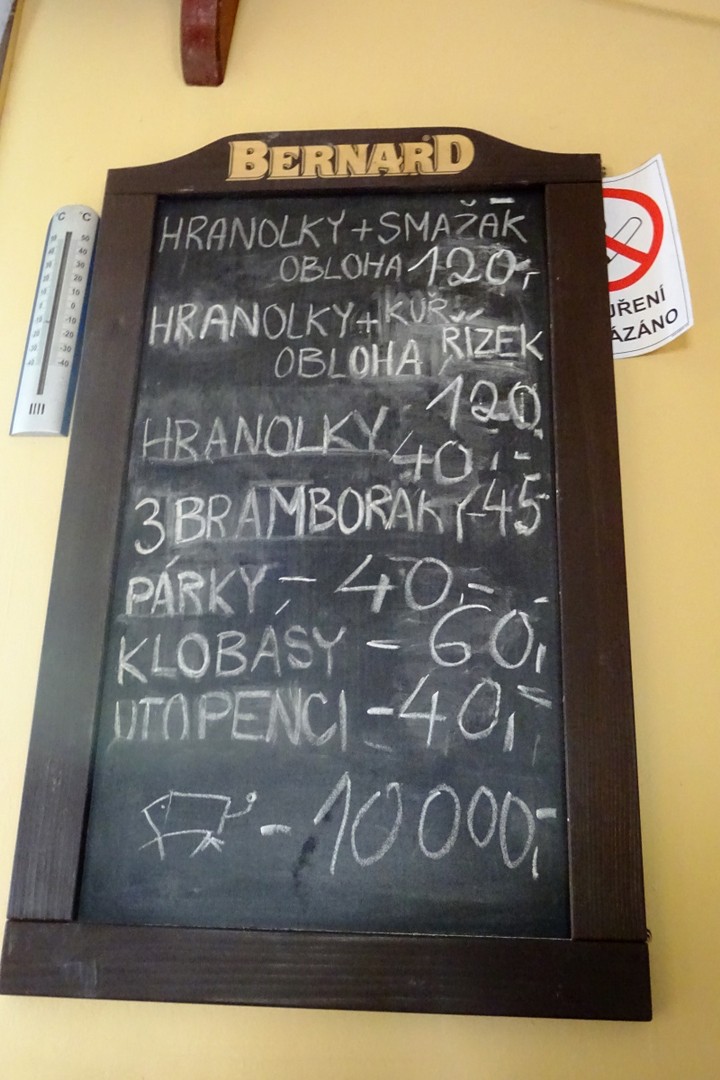 BERNARD
HRANOLKY + SMAŽÁK
OBLOHA 120,-
HRANOLKY + KUŘ.
ŘÍZEK
OBLOHA
120,-
HRANOLKY 40,-
3 BRAMBORÁKY - 45
PÁRKY - 40,-
KLOBÁSY - 60,-
UTOPENCI - 40,-
- 10 000,-
°C °C
50
40
30
20
10
0
-10
-20
-30
-40
UŘENÍ
ÁZÁNO